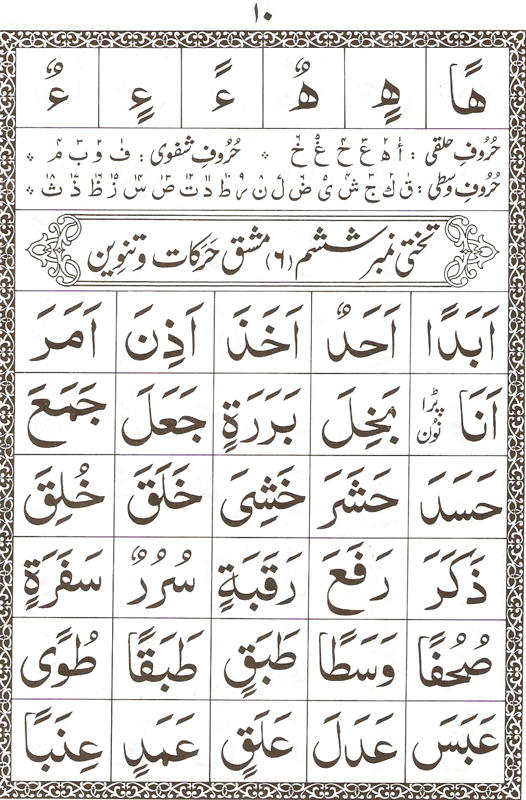 ١٠
هًا هٍ هٌ ءً ءٍ ءٌ
حُرُوفِ حلقی : أ ه ع ح غ خ * حُرُوفِ شفوی : ف و ب م *
حُرُوفِ وسطی : ق ك ج ش ی ض ل ن ر ط د ت ص س ز ظ ذ ث *
تختی نمبر ششم (٦) مشق حَرَکات و تنوِین
اَبَدًا اَحَدٌ اَخَذَ اَذِنَ اَمَرَ
اَنَا پڑا نون بَخِلَ بَرَرَةٍ جَعَلَ جَمَعَ
حَسَدَ حَشَرَ خَشِىَ خَلَقَ خُلِقَ
ذَكَرَ رَفَعَ رَقَبَةٍ سُرُرٌ سَفَرَةٍ
صُحُفًا وَسَطًا طَبَقٍ طَبَقًا طُوًى
عَبَسَ عَدَلَ عَلَقٍ عَمَدٍ عِنَبًا